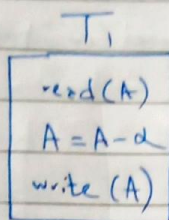 T₁
read(A)
A = A - α
write (A)